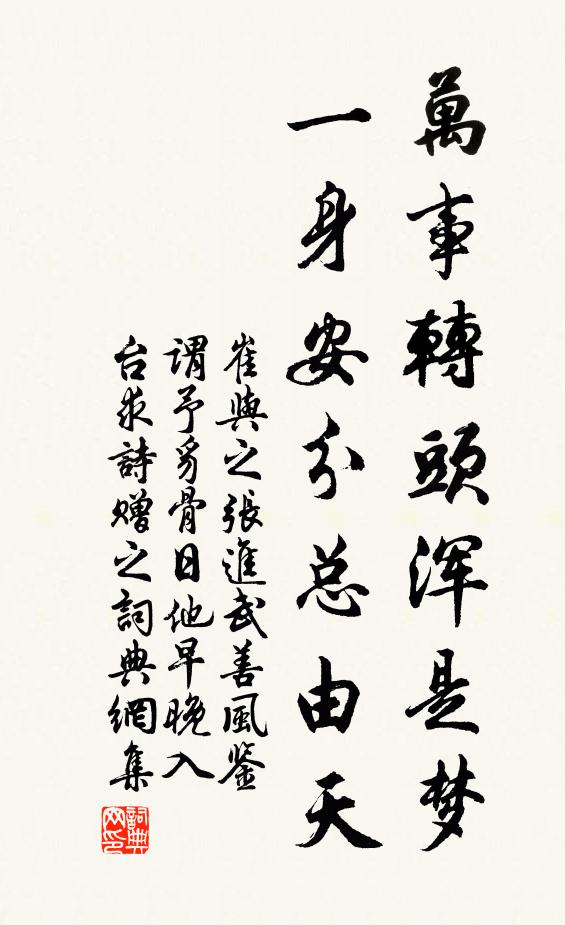 萬事轉頭浑是梦
一身安分总由天
崔與之張進武善風鉴
謂予多骨日他早晚入
台求詩赠之詞典網集
詞典
网印